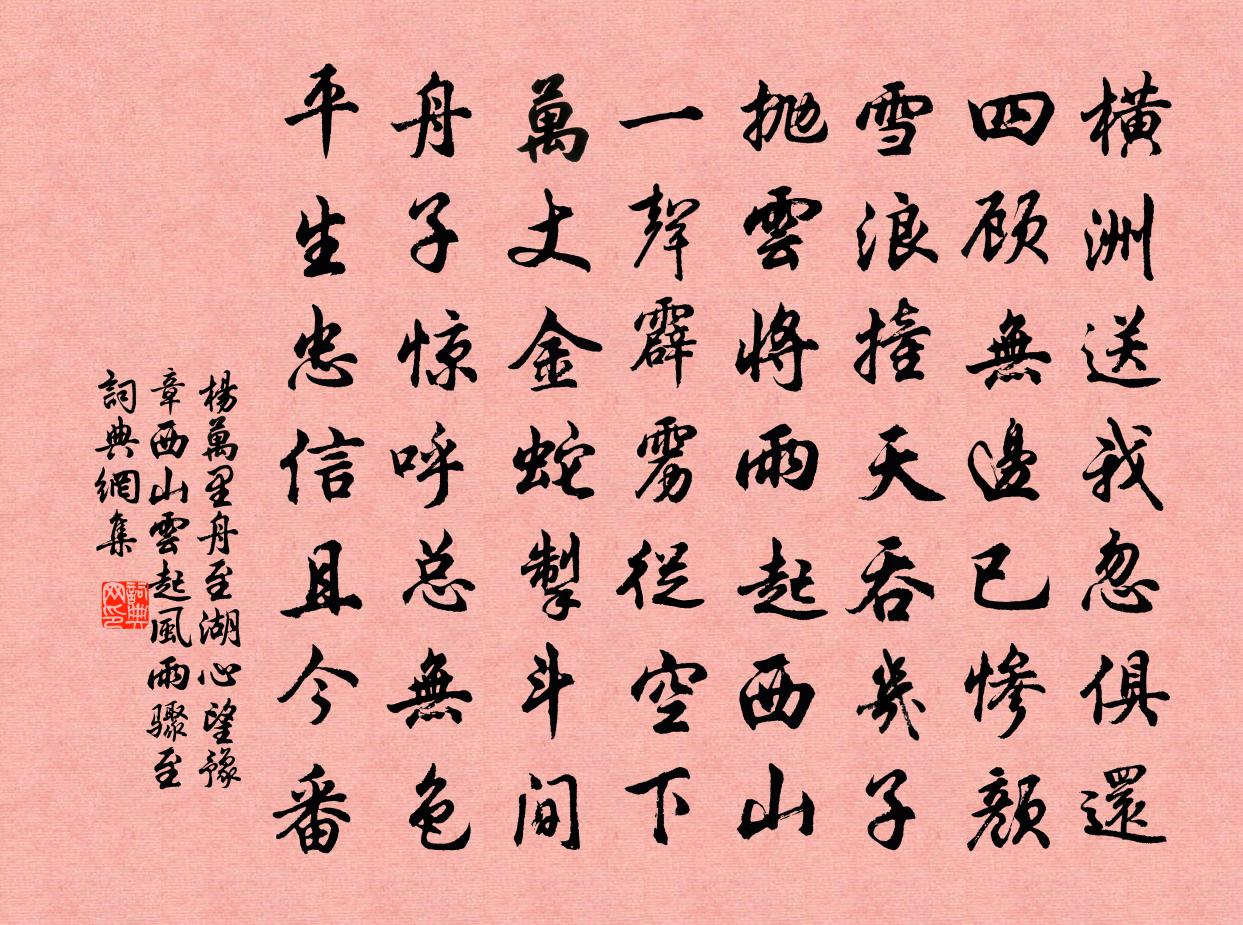 橫洲送我忽俱還
四顾無邊已惨顏
雪浪撞天吞幾子
抛雲將雨起西山
一聲霹雳從空下
萬丈金蛇掣斗间
舟子惊呼总無色
平生忠信且今番
楊萬里舟至湖心望豫
章西山雲起風雨驟至
詞典網集
詞典网印